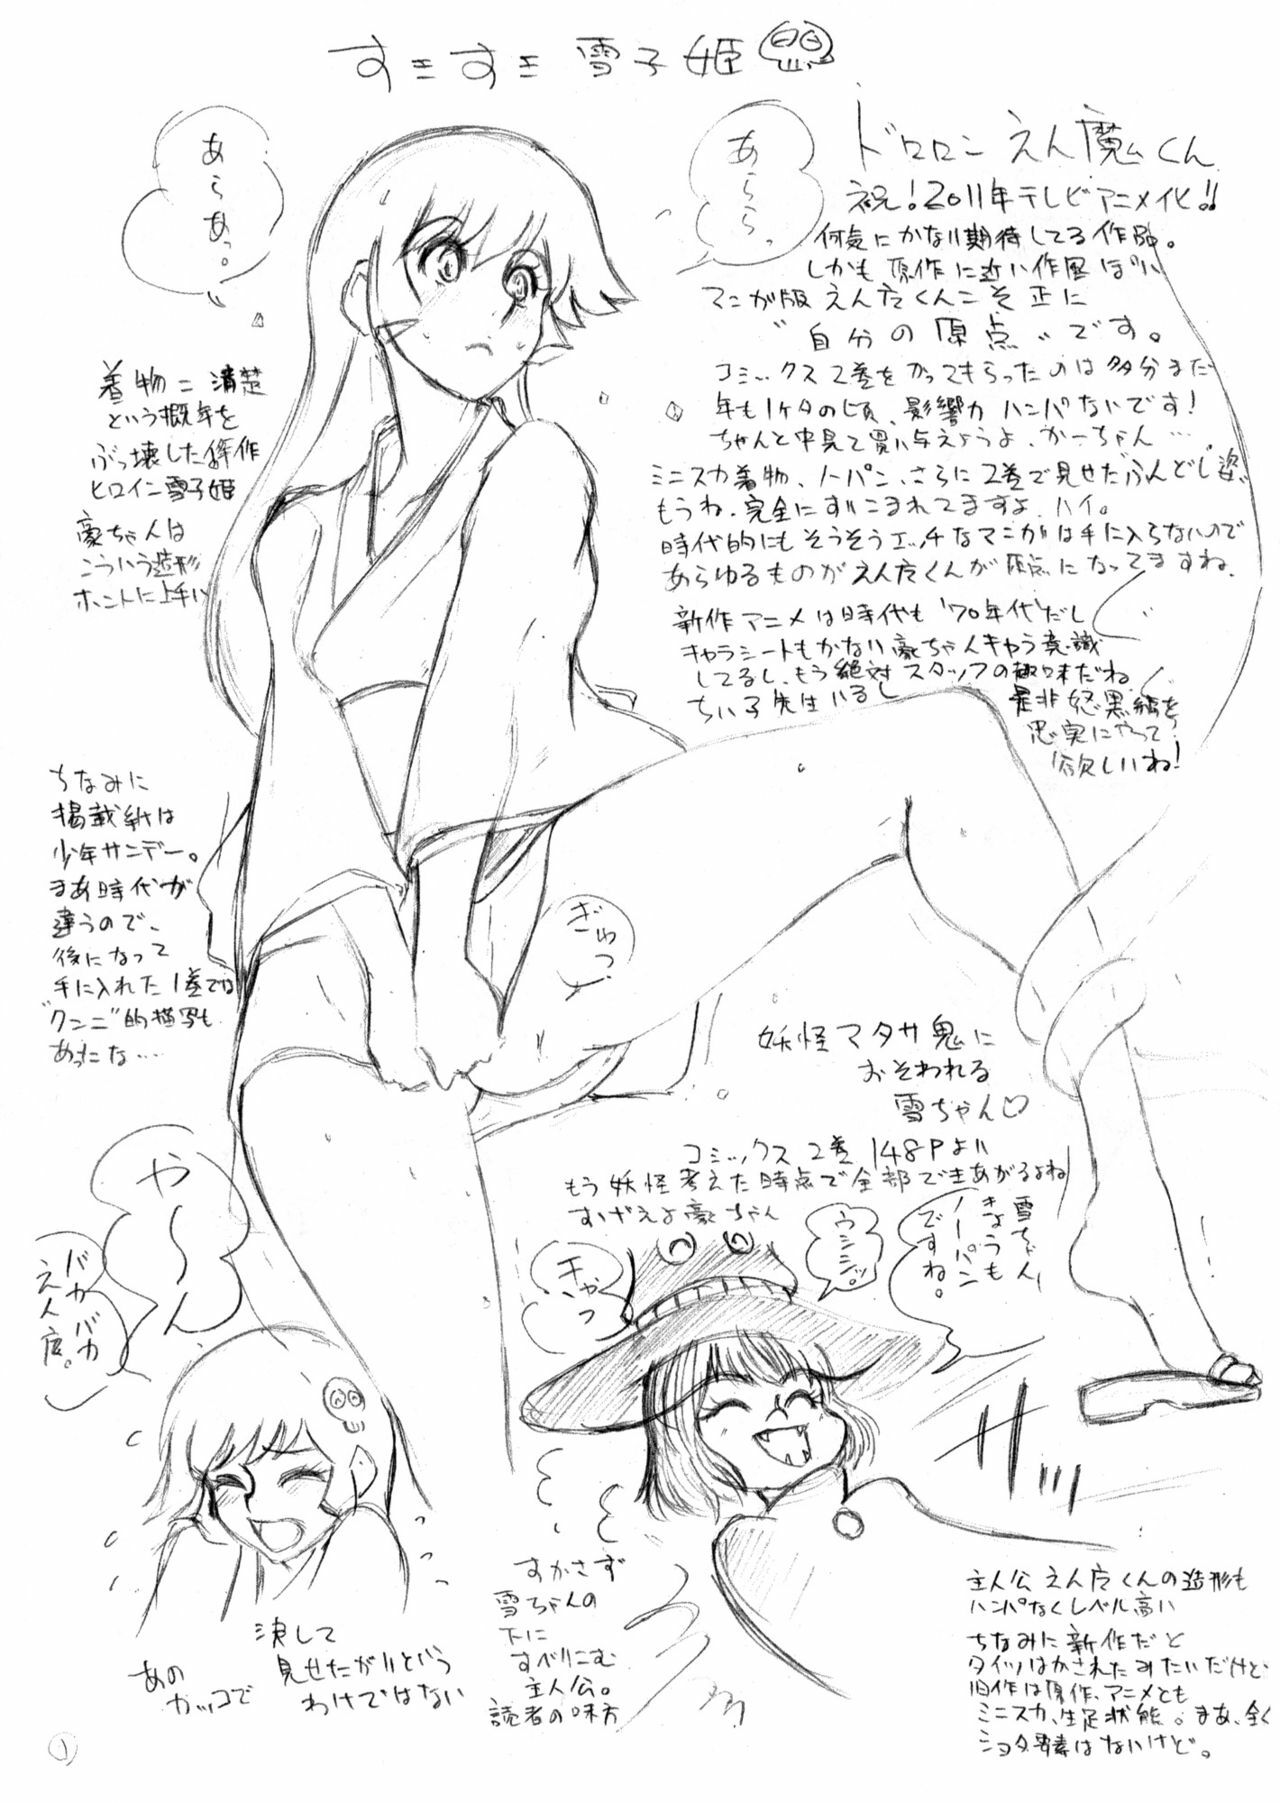 すきすき雪子姫
あらあっ。
あらら、
ドロロンえん魔くん
祝!2011年テレビアニメ化!!
何気にかなり期待してる作品。
しかも原作に近い作風ぽい
マンガ版えん魔くんこそ正に
"自分の原点"です。
コミックス2巻をかってもらったのは多分まだ
年も1ケタの頃、影響力ハンパないです!
ちゃんと中見て買い与えようよ、かーちゃん…。
ミニスカ着物、ノーパン、さらに2巻で見せたふんどし姿
もうね、完全にすりこまれてますよ、ハイ。
時代的にもそうそうエッチなマンガは手に入らないので
あらゆるものがえん魔くんが原点になってますね。
新作アニメは時代も'70年代だし
キャラシートもかなり豪ちゃんキャラ意識
してるし、もう絶対スタッフの趣味だね
ちい子先生いるし
是非
忠実にやって
欲しいね!
着物=清楚
という概年を
ぶっ壊した傑作
ヒロイン雪子姫
豪ちゃんは
こういう造形
ホントに上手い
ちなみに
掲載紙は
少年サンデー。
まあ時代が
違うので、
後になって
手に入れた1巻では
"クンニ"的描写も
あったな…
ぎゅっ
妖怪マタサ鬼に
おそわれる
雪ちゃん♡
コミックス2巻148Pより
もう妖怪考えた時点で全部できあがるよね
すげえよ豪ちゃん
や〜〜ん
バカバカ
えん魔。
キャッ
ウシシッ。
雪ちゃん、
きょうも
ノーパン
ですね。
あの
カッコで
決して
見せたがりという
わけではない
すかさず
雪ちゃんの
下に
すべりこむ
主人公。
読者の味方
主人公えん魔くんの造形も
ハンパなくレベル高い
ちなみに新作だと
タイツはかされたみたいだけど
旧作は原作、アニメとも
ミニスカ、生足状態。まあ、全く
ショタ要素はないけど。
①